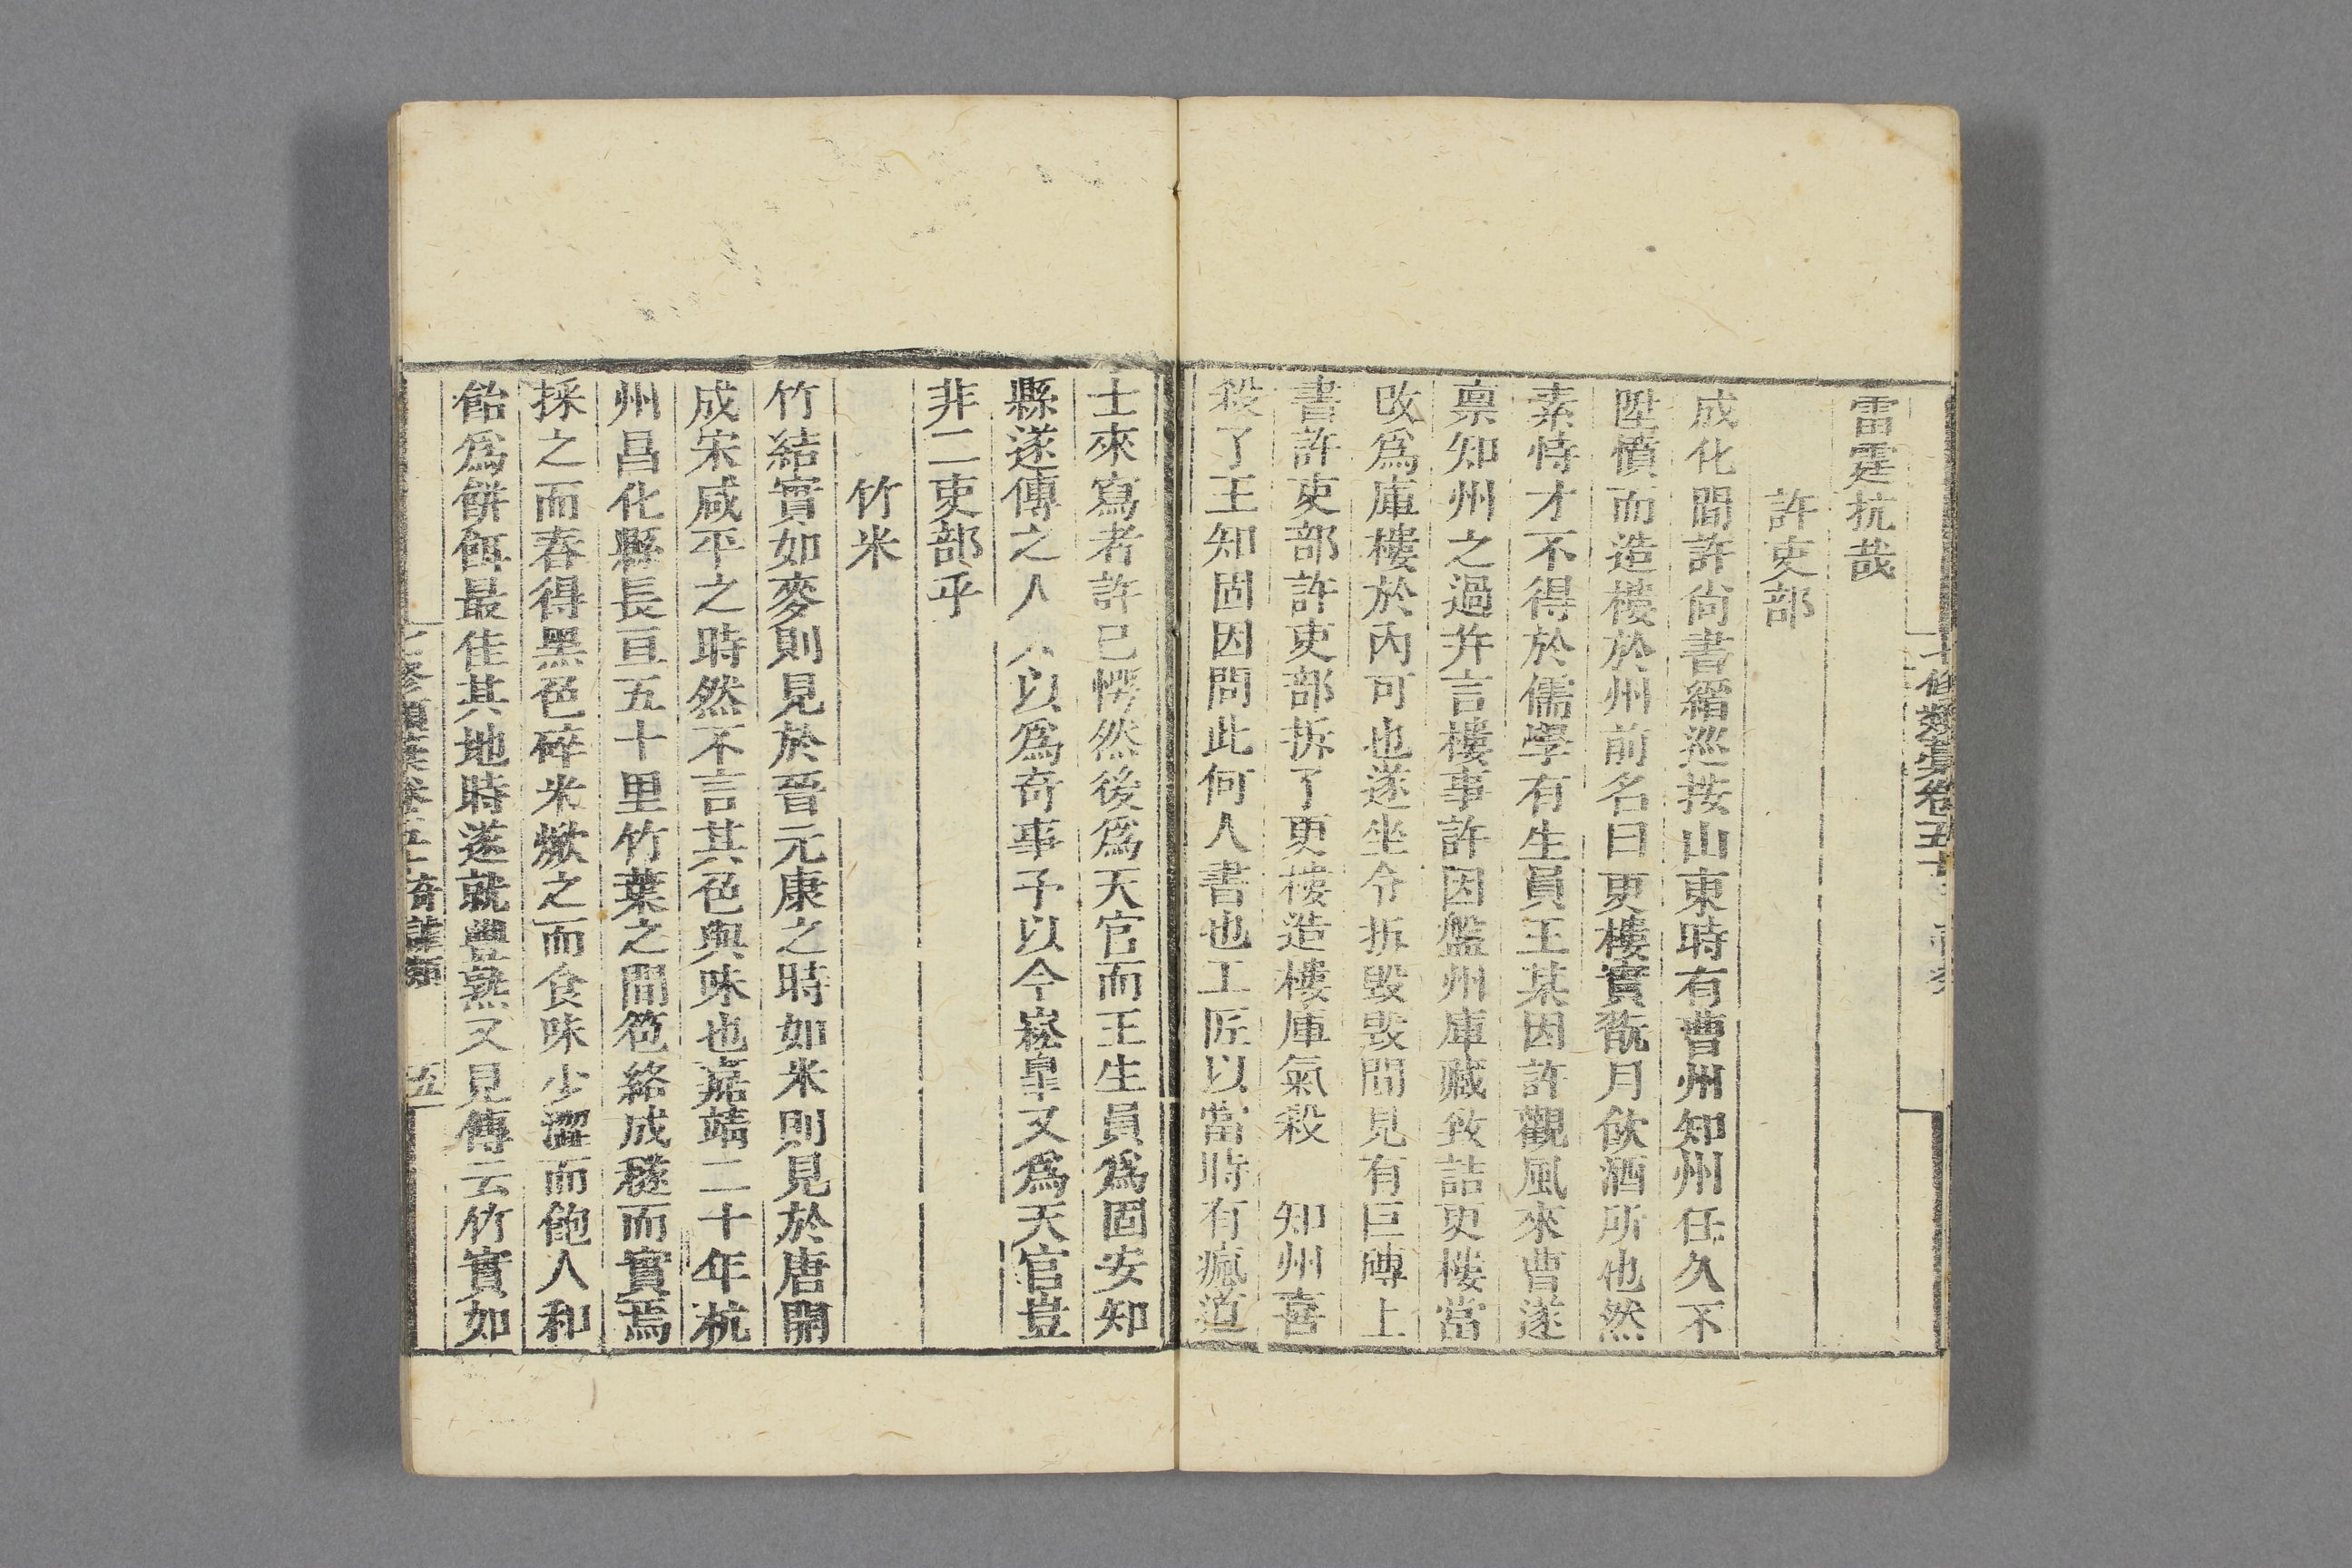 雷霆抗哉
許吏部
成化間許尚書縉巡按山東時有曹州知州任久不
陞憤而造樓於州前名曰更樓實翫月飲酒所也然
素恃才不得於儒學有生員王某因許觀風來曹遂
禀知州之過并言樓事許因盤州庫藏致詰更樓當
改為庫樓於内可也遂坐令拆毀毀間見有巨磚上
書許吏部許吏部拆了更樓造樓庫氣殺 知州喜
殺了王知固因問此何人書也工匠以當時有瘋道
士來寫者許已愕然後為天官而王生員為固安知
縣遂傳之人人以為奇事予以今崧臯又為天官豈
非二吏部乎
竹米
竹結實如麥則見於晉元康之時如米則見於唐開
成宋咸平之時然不言其色與味也嘉靖二十年杭
州昌化縣長亘五十里竹葉之間苞絡成穟而實焉
採之而舂得黑色碎米炊之而食味少澀而飽人和
飴為餅餌最佳其地時遂就豐熟又見傳云竹實如
七修類藁卷五十 奇謔類 五